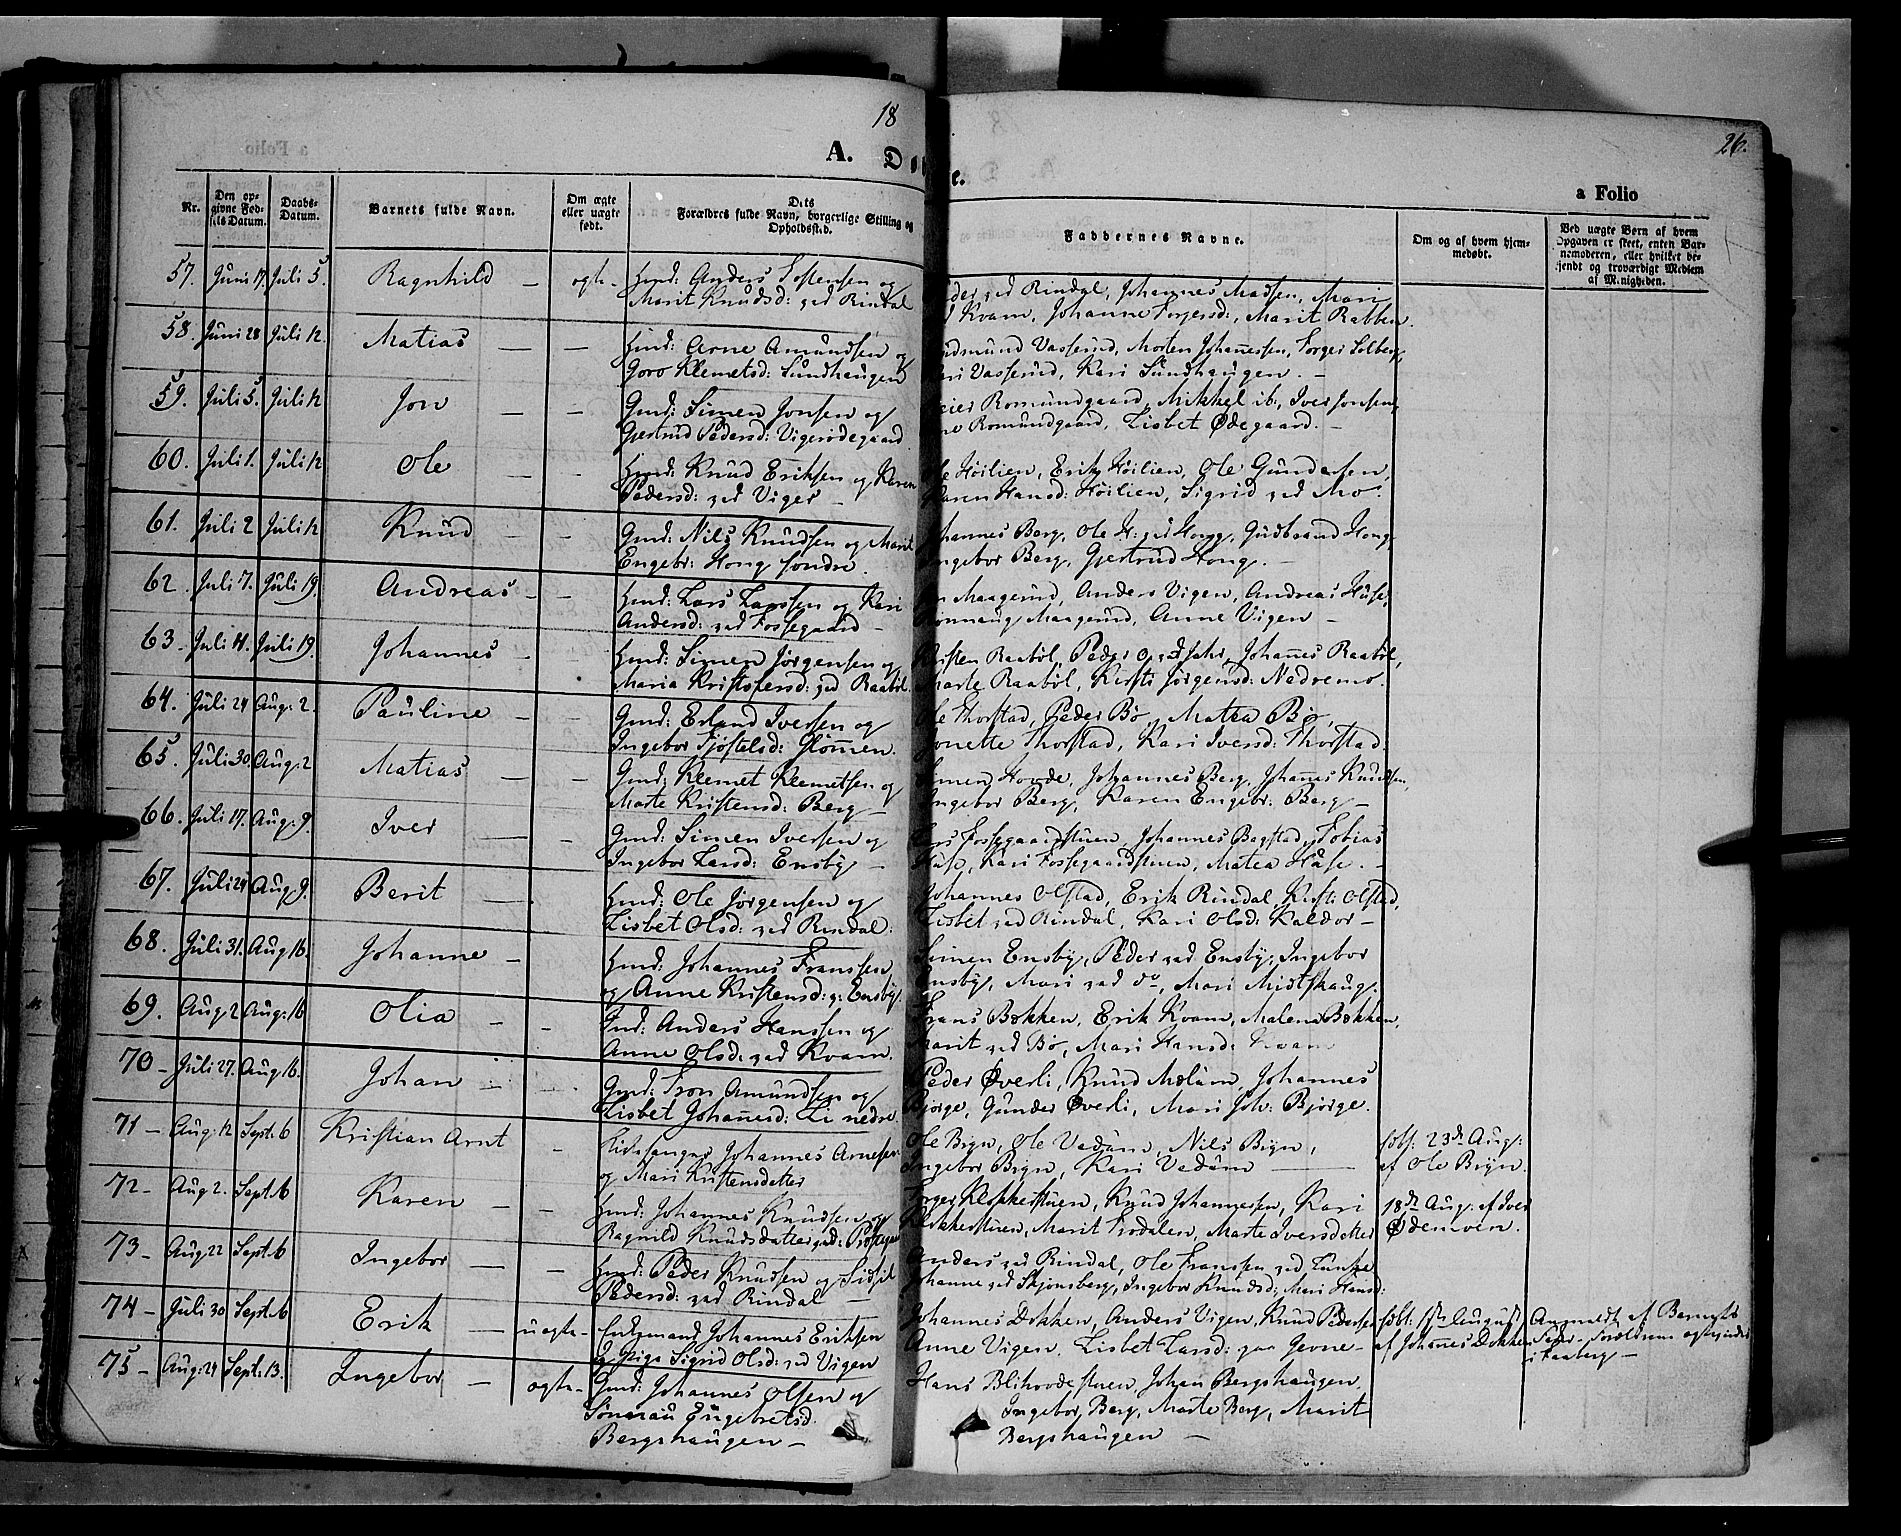 18
26.
A. D
e.
a Folio
Nr.
Den op-
givne Fød-
sels Datum.
Daabs-
Datum.
Barnets fulde Navn.
Om ægte
eller uægte
født.
Dets
Forældres fulde Navn, borgerlige Stilling og
Opholdssted.
Faddernes Navne.
Om og af hvem hjem-
medøbt.
Ved uægte Børn af hvem
Opgaven er skeet, enten Bar-
nemoderen, eller hvilket be-
kjendt og troværdigt Medlem
af Menigheden.
57. Juni 17. Juli 5. Ragnhild — ægte- Hmd: Anders Tostensen og
Marit Knudsd: ved Rindal
Peder ved Rindal, Johannes Madsen, Mari
Kvam, Johanne Torgersd:, Marit Rabben.
58. Juni 28 Juli 12. Matias — — Hmd: Arne Amundsen og
Goro Klemetsd: Sundhaugen
Gudmund Vasserud, Morten Johannessen, Torger Solberg,
Kari Vasserud, Kari Sundhaugen. —
59. Juli 5. Juli 12 Jon — — Gmd: Simen Jonsen og
Gjertrud Pedersd: Vigerødegaard
Romundgaard, Mikkel ib:, Iver Jonsen,
Romundgaard, Lisbet Ødegaard. —
60. Juli 1. Juli 12 Ole — — Hmd: Knud Eriksen og Karen
Pedersd: ved Viger —
Ole Høilien, Erik Høilien, Ole Gundersen,
Karen Hansd: Høilien, Sigrid ved Mo.
61. Juli 2 Juli 12 Knud — — Gmd: Nils Knudsen og Marit
Engebr: Hong søndre.
Johannes Berg, Ole H: ved Hong, Gudbrand Hong,
Ingebor Berg, Gjertrud Hong. —
62. Juli 7. Juli 19. Andreas — — Hmd: Lars Larssen og Kari
Andersd: ved Fossegaard —
Maagerud, Anders Vigen, Andreas Huse,
Rønnaug Maagerud, Anne Vigen —
63 - Juli 11. Juli 19. Johannes — — Hmd: Simen Jørgensen og
Maria Kristofersd: ved Raabøl.
Kristen Raabøl, Peder, Johannes Raabøl,
Marte Raabøl, Kirsti Jørgensd: Nedremo.
64. Juli 24 Aug: 2. Pauline — — Gmd: Erland Iversen og
Ingebor Tjøstelsd: Glomen.
Ole Thorstad, Peder Bø, Matea Bø,
Jonette Thorstad, Kari Iversd: Thorstad.
65. Juli 30. Aug: 2 Matias — — Gmd: Klemet Klemetsen og
Marte Kristensd: Berg —
Simen Hovde, Johannes Berg, Johanes Knudsen,
Ingebor Berg, Karen Engebr: Berg —
66. Juli 17. Aug: 9. Iver — — Gmd: Simen Iversen og
Ingebor Larsd: Ensby —
Lars Fossegaardstuen, Johannes Bagstad, Tobias
Huse, Kari Fossegaardstuen, Matea Huse. —
67. Juli 24 Aug: 9. Berit — — Hmd: Ole Jørgensen og
Lisbet Olsd: ved Rindal.
Johannes Olstad, Erik Rindal, Kirsti Olstad,
Lisbet ved Rindal, Kari Olsd: Kaldor —
68. Juli 31. Aug 16. Johanne — Hmd: Johannes Franssen,
og Anne Kristensd: v: Ensby.
Simen Ensby, Peder ved Ensby, Ingebor
Ensby, Mari ved do, Mari Midtskaug.
69. Aug: 2 Aug: 16 Olia — — Ind: Anders Hanssen og
Anne Olsd: ved Kvam.
Frans Bakken, Erik Kvam, Malena Bakken,
Marit ved Bø, Mari Hansd: Kvam
70 - Juli 27. Aug 16. Johan — — Gmd: Tron Amundsen og
Lisbet Johanesd: Li nedre.
Peder Øverli, Knud Mælum, Johannes
Bjørge, Gunder Øverli, Mari Joh: Bjørge.
71 — Aug: 12 Sept: 6 Kristian Arnt — Johannes Arnesen
og Mari Kristensdatter
Ole Bryn, Ole Vedum, Nils Bryn,
Ingebor Bryn, Kari Vedum —
døbt: 23de Aug:
af Ole Bryn.
72 — Aug 2. Sept. 6 Karen — — Hmd: Johannes Knudsen og
Ragnild Knudsdatter ved
Torger Klokkestuen, Knud Johannessen, Kari
Klokkestuen, Marit Frodalen, Marte Iversdatter
18de Aug. af Iver
73 — Aug 22 Sept. 6 Ingebor — — Hmd: Peder Knudsen og Sidsil
Pedersd: ved Rindal —
Anders ved Rindal, Ole Franssen ved Lunke
Johanne ved Skjønsberg, Ingebor Knudsd:, Mari Hansd:
74 — Juli 30 Sept: 6 Erik — uægte- Enkemand Johannes Eriksen
og Pige Sigrid Olsd: ved Vigen
Johannes Dokken, Anders Vigen, Knud Pedersen
Anne Vigen, Lisbet Larsd: paa Jevne —
døbt: 1ste August
af Johanes Dokken
Anmeldt af Barnets
Forældrene
i Faaberg —
75 — Aug: 24 Sept: 13. Ingebor — ægte- Gmd: Johannes Olsen og
Engebretsd.
Bergshaugen —
Hans Blihovdestuen, Johan Bergshaugen.
Ingebor Berg, Marte Berg, Marit
Bergshaugen —